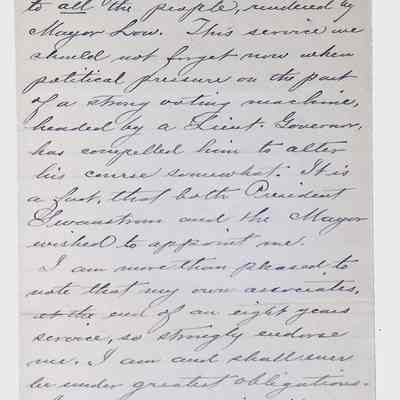 to all the people, rendered by
Mayor Low. This service we
should not forget now when
political pressure on the part
of a strong voting machine,
headed by a Lieut. Governor,
has compelled him to alter
his course somewhat. It is
a fact, that both President
Swanstrom and the Mayor
wished to appoint me.
I am more than pleased to
note that my own associates,
at the end of an eight years
service, so strongly endorse
me. I am and shall ever
be under greatest obligations.